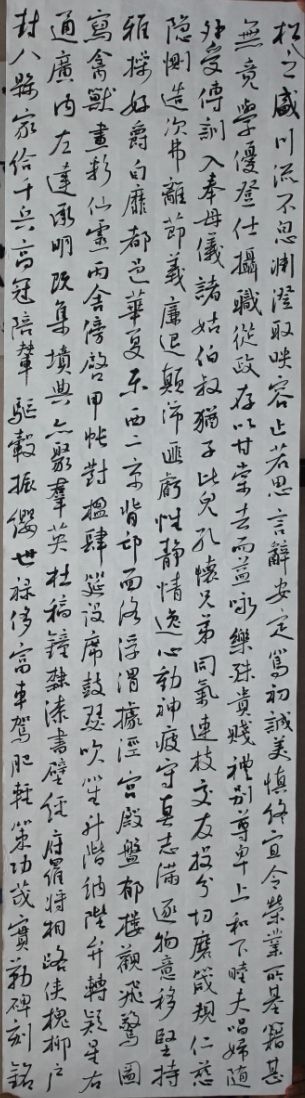 松之盛川流不息淵澄取映容止若思言辭安定篤初誠美慎終宜令榮業所基籍甚
無竟學優登仕攝職從政存以甘棠去而益詠樂殊貴賤禮別尊卑上和下睦夫唱婦隨
外受傅訓入奉母儀諸姑伯叔猶子比兒孔懷兄弟同氣連枝交友投分切磨箴規仁慈
隐惻造次弗離節義廉退顛沛匪虧性靜情逸心動神疲守真志滿逐物意移堅持
雅操好爵自縻都邑華夏東西二京背邙面洛浮渭據涇宮殿盤郁樓觀飛驚圖
寫禽獸畫彩仙靈丙舍傍啓甲帳對楹肆筵設席鼓瑟吹笙升階納陛弁轉疑星右
通廣內左達承明既集墳典亦聚羣英杜稿鐘隸漆書壁經府羅將相路俠槐卿户
封八縣家給千兵高冠陪輦驅轂振纓世祿侈富車駕肥輕策功茂實勒碑刻銘